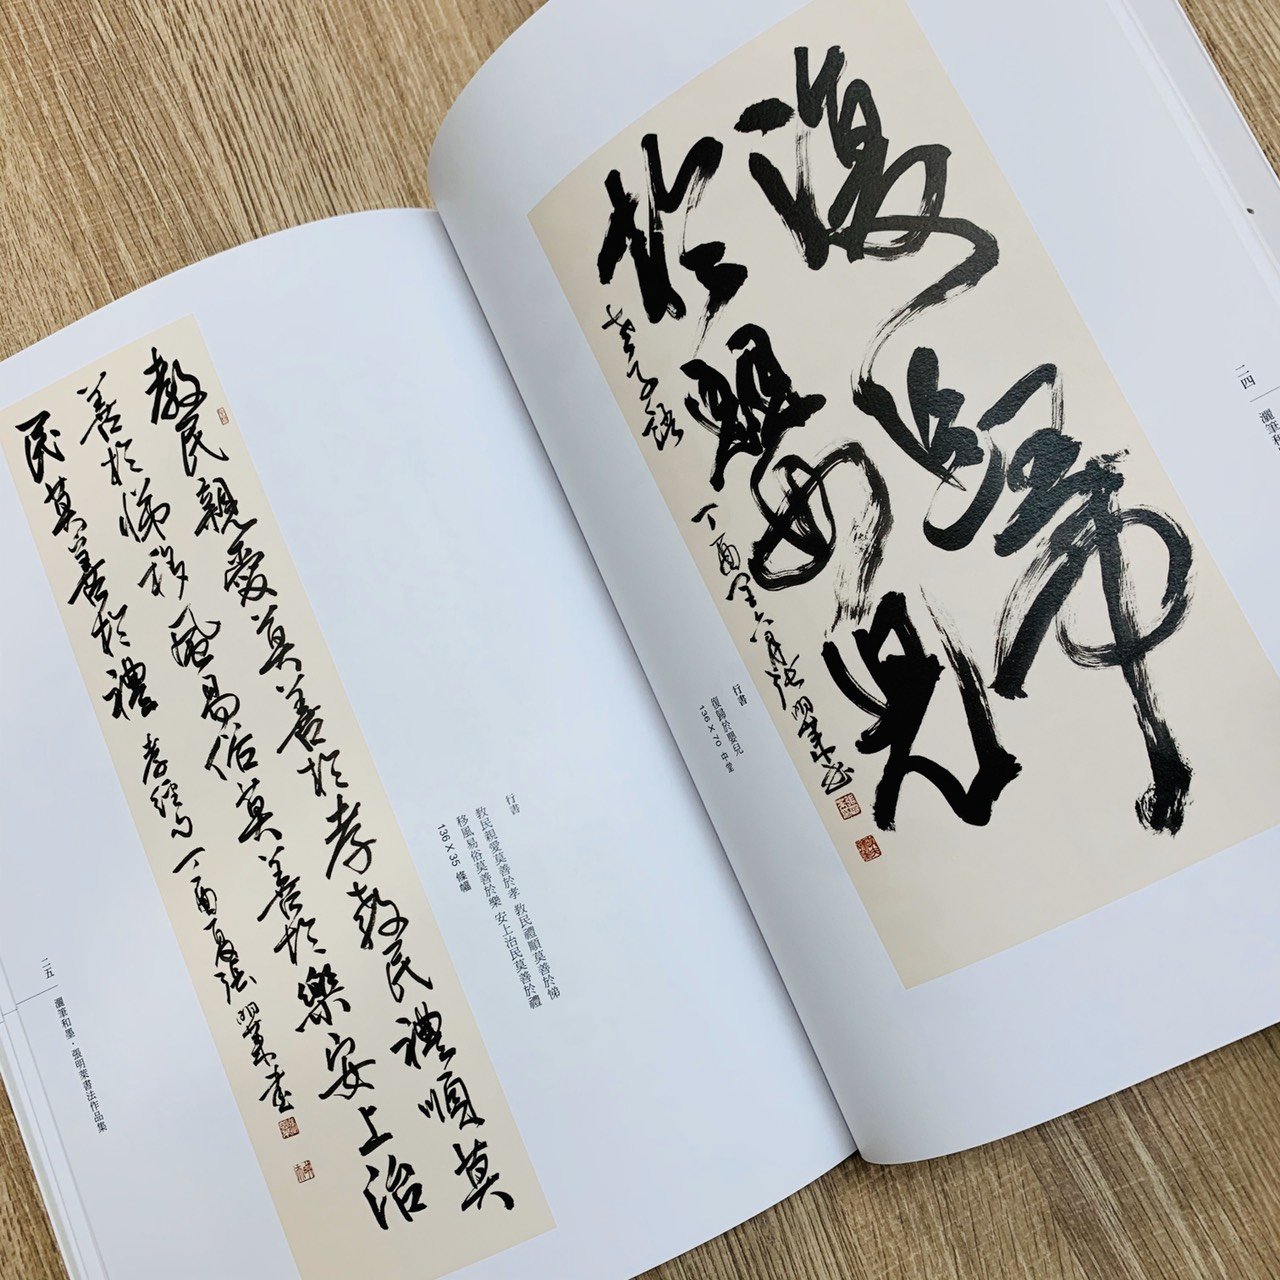 二四
灑筆和
復歸
於嬰兒
老子語 丁酉閏六月張明萊書
行書
復歸於嬰兒
136 X 70 中堂
教民親愛莫善於孝教民禮順莫
善於悌移風易俗莫善於樂安上治
民莫善於禮 孝經句 丁酉夏張明萊書
行書
教民親愛莫善於孝 教民禮順莫善於悌
移風易俗莫善於樂 安上治民莫善於禮
136 X 35 條幅
二五
灑筆和墨・張明萊書法作品集